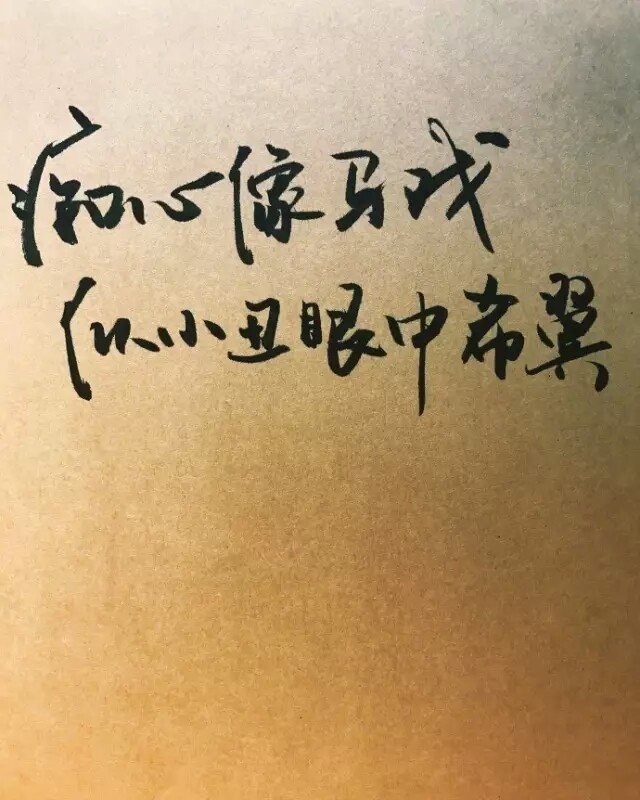 痴心像马戏
似小丑眼中希翼